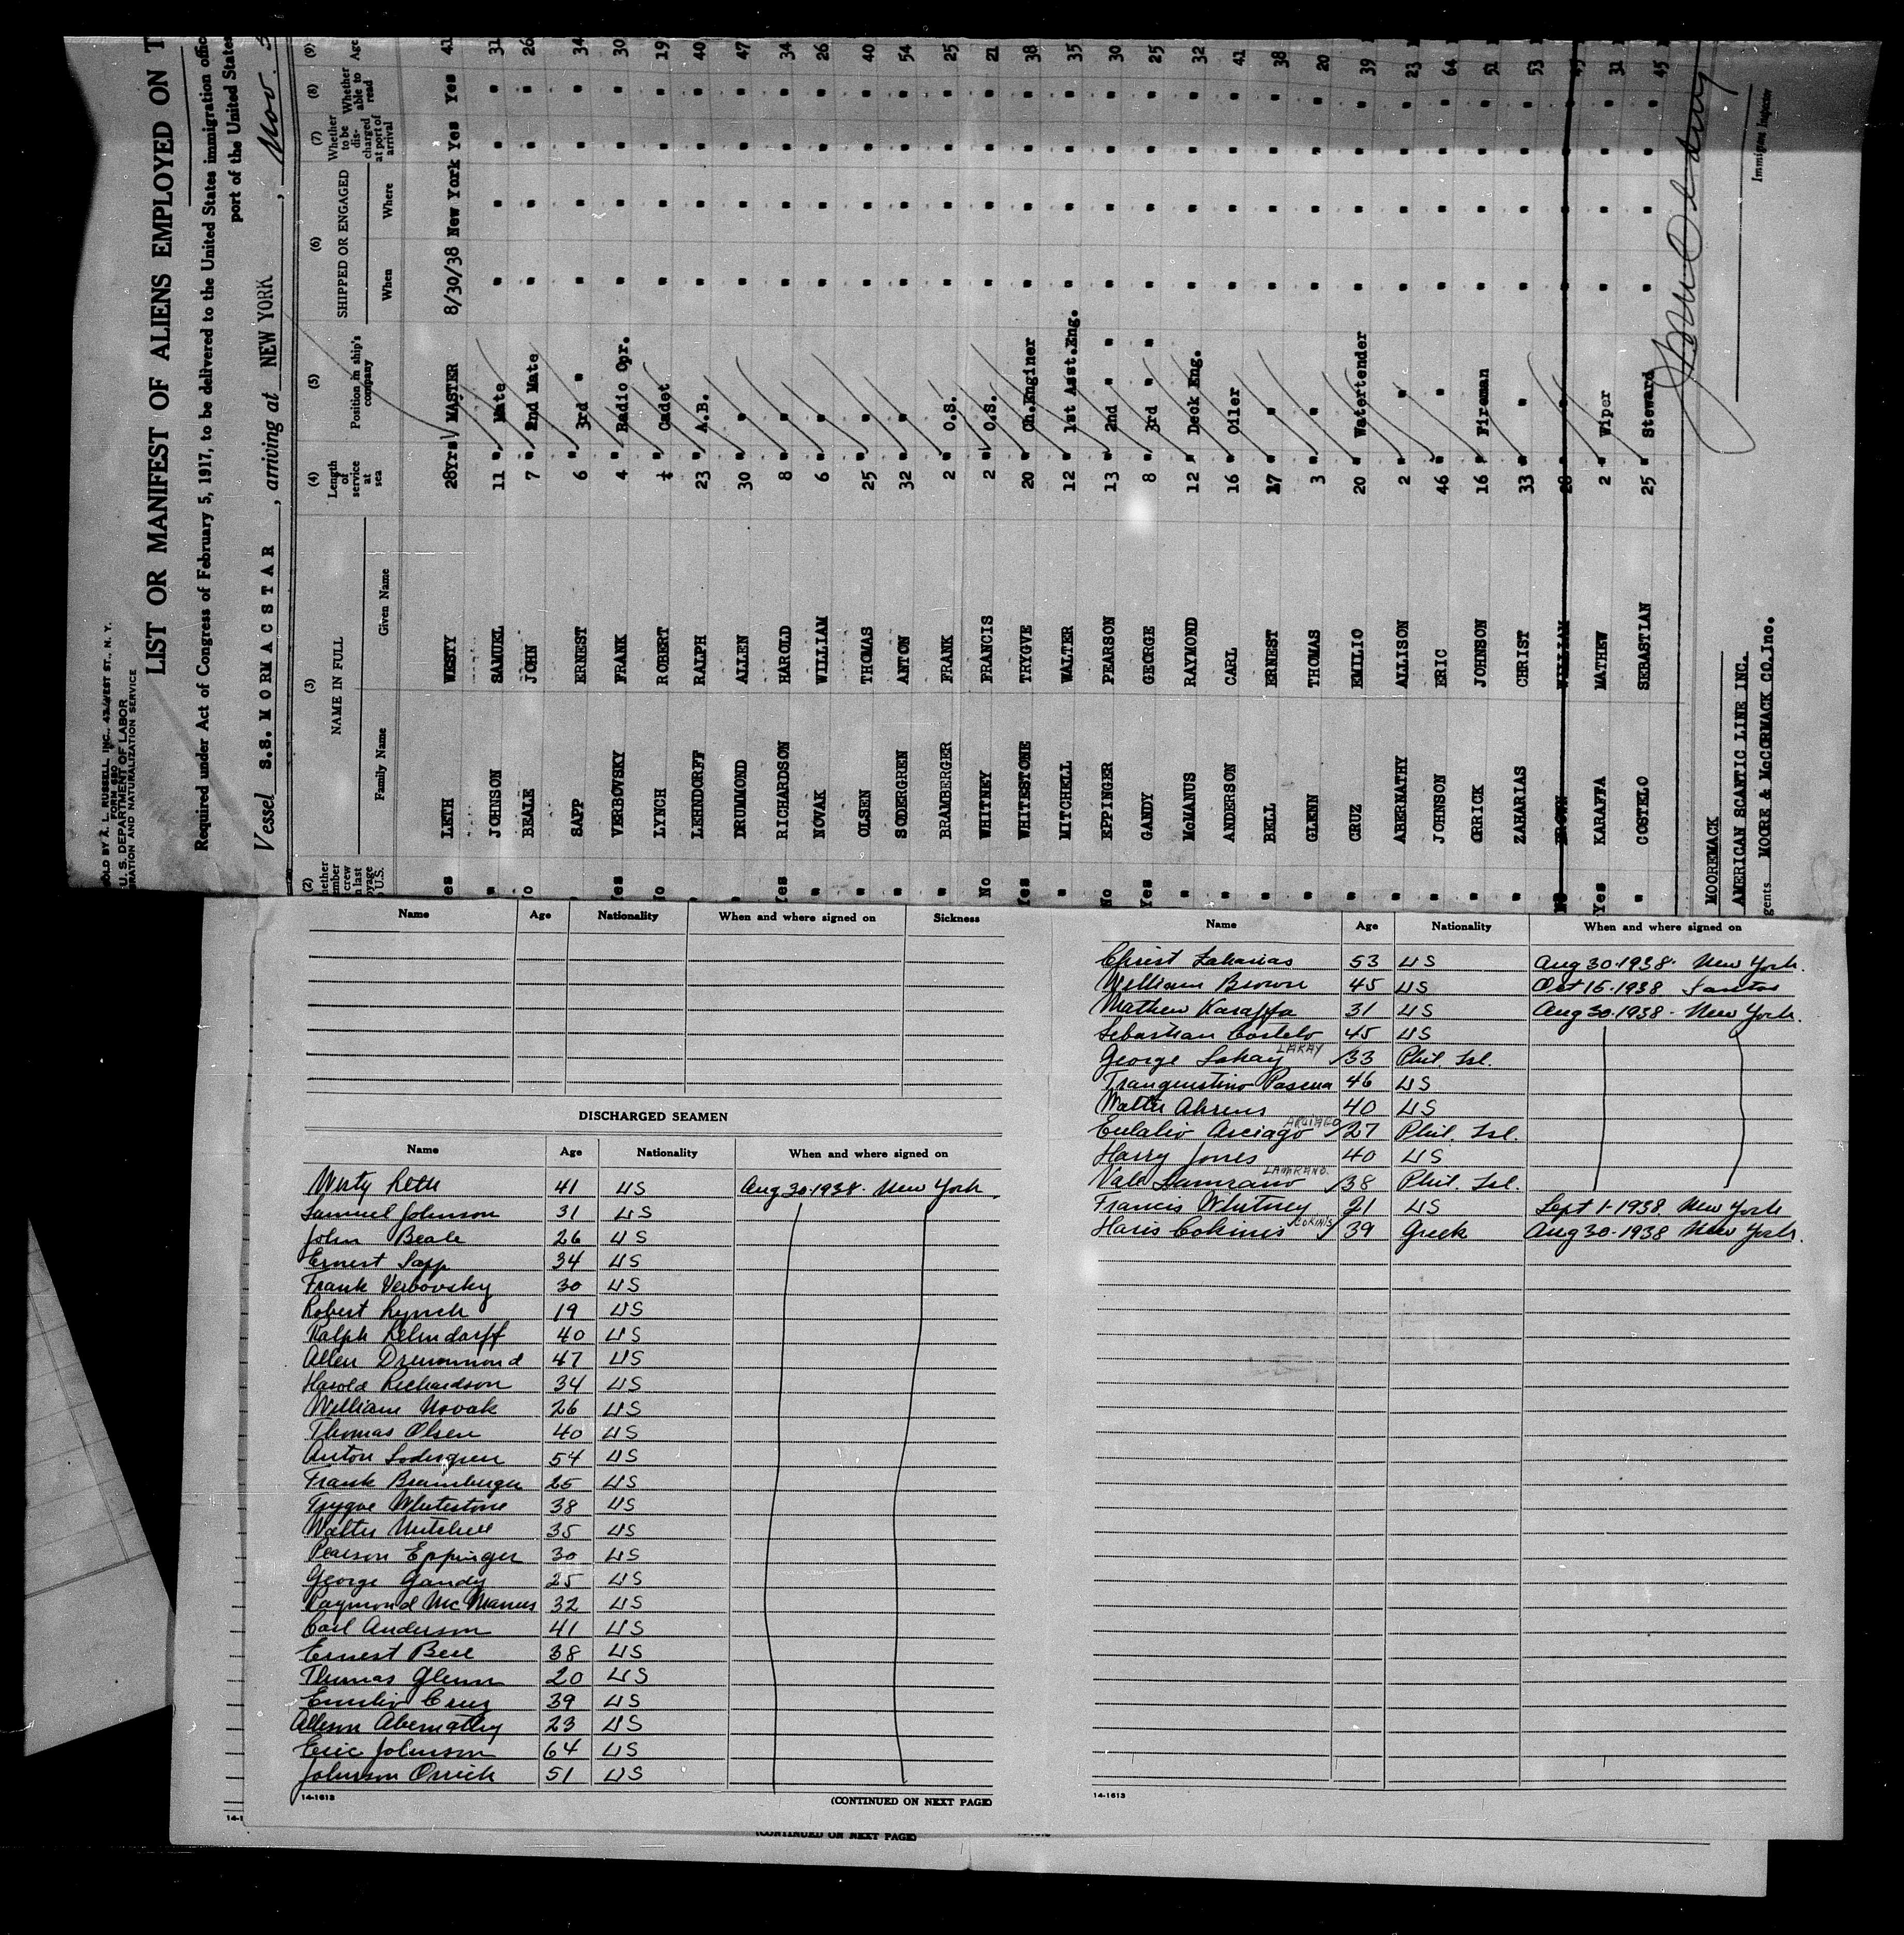 SOLD BY A. L. RUSSELL, INC., ST., N. Y.
FORM 680
U. S. DEPARTMENT OF LABOR
GRATION AND NATURALIZATION SERVICE
LIST OR MANIFEST OF ALIENS EMPLOYED ON T
Required under Act of Congress of February 5, 1917, to be delivered to the United States immigration offic
port of the United States
Vessel S.S. MORMACSTAR, arriving at NEW YORK, Nov. 5
(2) (3) (4) (5) (6) (7) (8) (9)
NAME IN FULL Length of service at sea Position in ship's company SHIPPED OR ENGAGED Whether to be discharged at port of arrival Whether able to read Age
Family Name Given Name When Where
es LETH WESTY 28Yrs MASTER 8/30/38 New York Yes Yes 41
" JOHNSON SAMUEL 11 " Mate " " " " 31
No BEALE JOHN 7 " 2nd Mate " " " " 26
" SAPP ERNEST 6 " 3rd " " " " " 34
Yes VERBOVSKY FRANK 4 " Radio Opr. " " " " 30
No LYNCH ROBERT ½ " Cadet " " " " 19
" LEHNDORFF RALPH 23 " A.B. " " " " 40
" DRUMMOND ALLEN 30 " " " " " " 47
Yes RICHARDSON HAROLD 8 " " " " " " 34
" NOVAK WILLIAM 6 " " " " " " 26
" OLSEN THOMAS 25 " " " " " " 40
" SODERGREN ANTON 32 " " " " " " 54
" BRAMBERGER FRANK 2 " O.S. " " " " 25
No WHITNEY FRANCIS 2 " O.S. " " " " 21
Yes WHITESTONE TRYGVE 20 " Ch.Enginer " " " " 38
" MITCHELL WALTER 12 " 1st Asst.Eng. " " " " 35
No EPPINGER PEARSON 13 " 2nd " " " " " " 30
Yes GANDY GEORGE 8 " 3rd " " " " " " 25
" McMANUS RAYMOND 12 " Deck Eng. " " " " 32
" ANDERSON CARL 16 " Oiler " " " " 41
" BELL ERNEST 17 " " " " " " 38
" GLENN THOMAS 3 " " " " " " 20
" CRUZ EMILIO 20 " Watertender " " " " 39
" ABERNATHY ALLISON 2 " " " " " " 23
" JOHNSON ERIC 46 " " " " " " 64
" ORRICK JOHNSON 16 " Fireman " " " " 51
" ZAHARIAS CHRIST 33 " " " " " " 53
NO BROWN WILLIAM 28 " " " " " 45
Yes KARAFFA MATHEW 2 " Wiper " " " " 31
" COSTELO SEBASTIAN 25 " Steward " " " " 45
MOOREMACK
AMERICAN SCANTIC LINE INC.
gents MOORE & McCORMACK CO.Inc.
Immigrant Inspector
Name Age Nationality When and where signed on Sickness
DISCHARGED SEAMEN
Name Age Nationality When and where signed on
Westy Leth 41 US Aug 30-1938. New York
Samuel Johnson 31 US
John Beale 26 US
Ernest Sapp 34 US
Frank Verbovsky 30 US
Robert Lynch 19 US
Ralph Lehndorff 40 US
Allen Drummond 47 US
Harold Richardson 34 US
William Novak 26 US
Thomas Olsen 40 US
Anton Sodergren 54 US
Frank Bramberger 25 US
Trygve Whitestone 38 US
Walter Mitchell 35 US
Pearson Eppinger 30 US
George Gandy 25 US
Raymond McManus 32 US
Carl Anderson 41 US
Ernest Bell 38 US
Thomas Glenn 20 US
Emilio Cruz 39 US
Allison Abernathy 23 US
Eric Johnson 64 US
Johnson Orrick 51 US
14-1613 (CONTINUED ON NEXT PAGE)
Name Age Nationality When and where signed on
Christ Zaharias 53 US Aug 30-1938. New York.
William Brown 45 US Oct 15-1938 Santos
Mathew Karaffa 31 US Aug 30-1938. New York.
Sebastian Costelo 45 US
George Lakay LAKAY 33 Phil. Isl.
Pascua 46 US
Walter Ahrens 40 US
Eulalio Arciago ARCIAGO 27 Phil. Isl.
Harry Jones 40 US
Vale Lamrano LAMRANO. 38 Phil. Isl.
Francis Whitney 21 US Sept 1-1938 New York
Haris Cokinis COKINIS 39 Greek Aug 30-1938 New York.
14-1613
14-1
(CONTINUED ON NEXT PAGE)